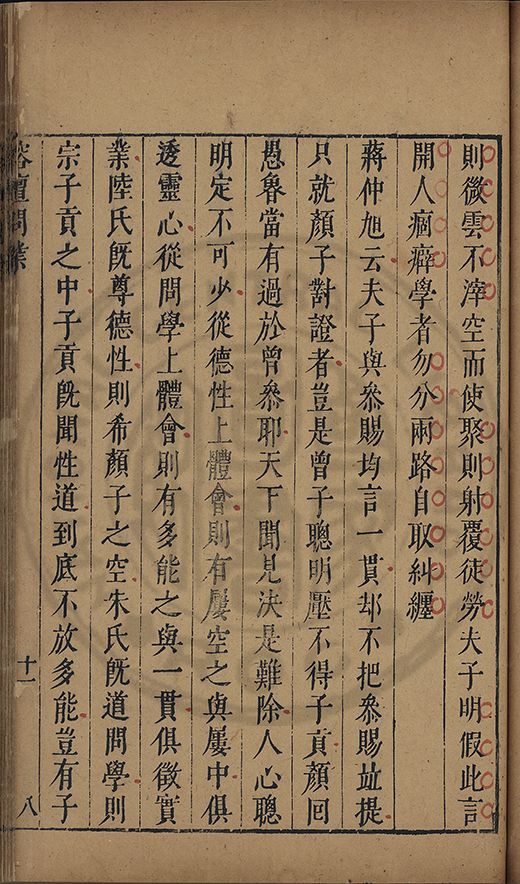 則微雲不滓空而使聚則射覆徒勞夫子明假此言
開人痼癖學者勿分兩路自取糾纏
蔣仲旭云夫子與參賜均言一貫却不把參賜並提
只就顏子對證者豈是曾子聰明壓不得子貢顏回
愚魯當有過於曾參耶天下聞見決是難除人心聰
明定不可少從德性上體會則有屢空之與屢中俱
透靈心從問學上體會則有多能之與一貫俱徵實
業陸氏既尊德性則希顏子之空朱氏既道問學則
宗子貢之中子貢既聞性道到底不放多能豈有子
榕壇問業
十一
八